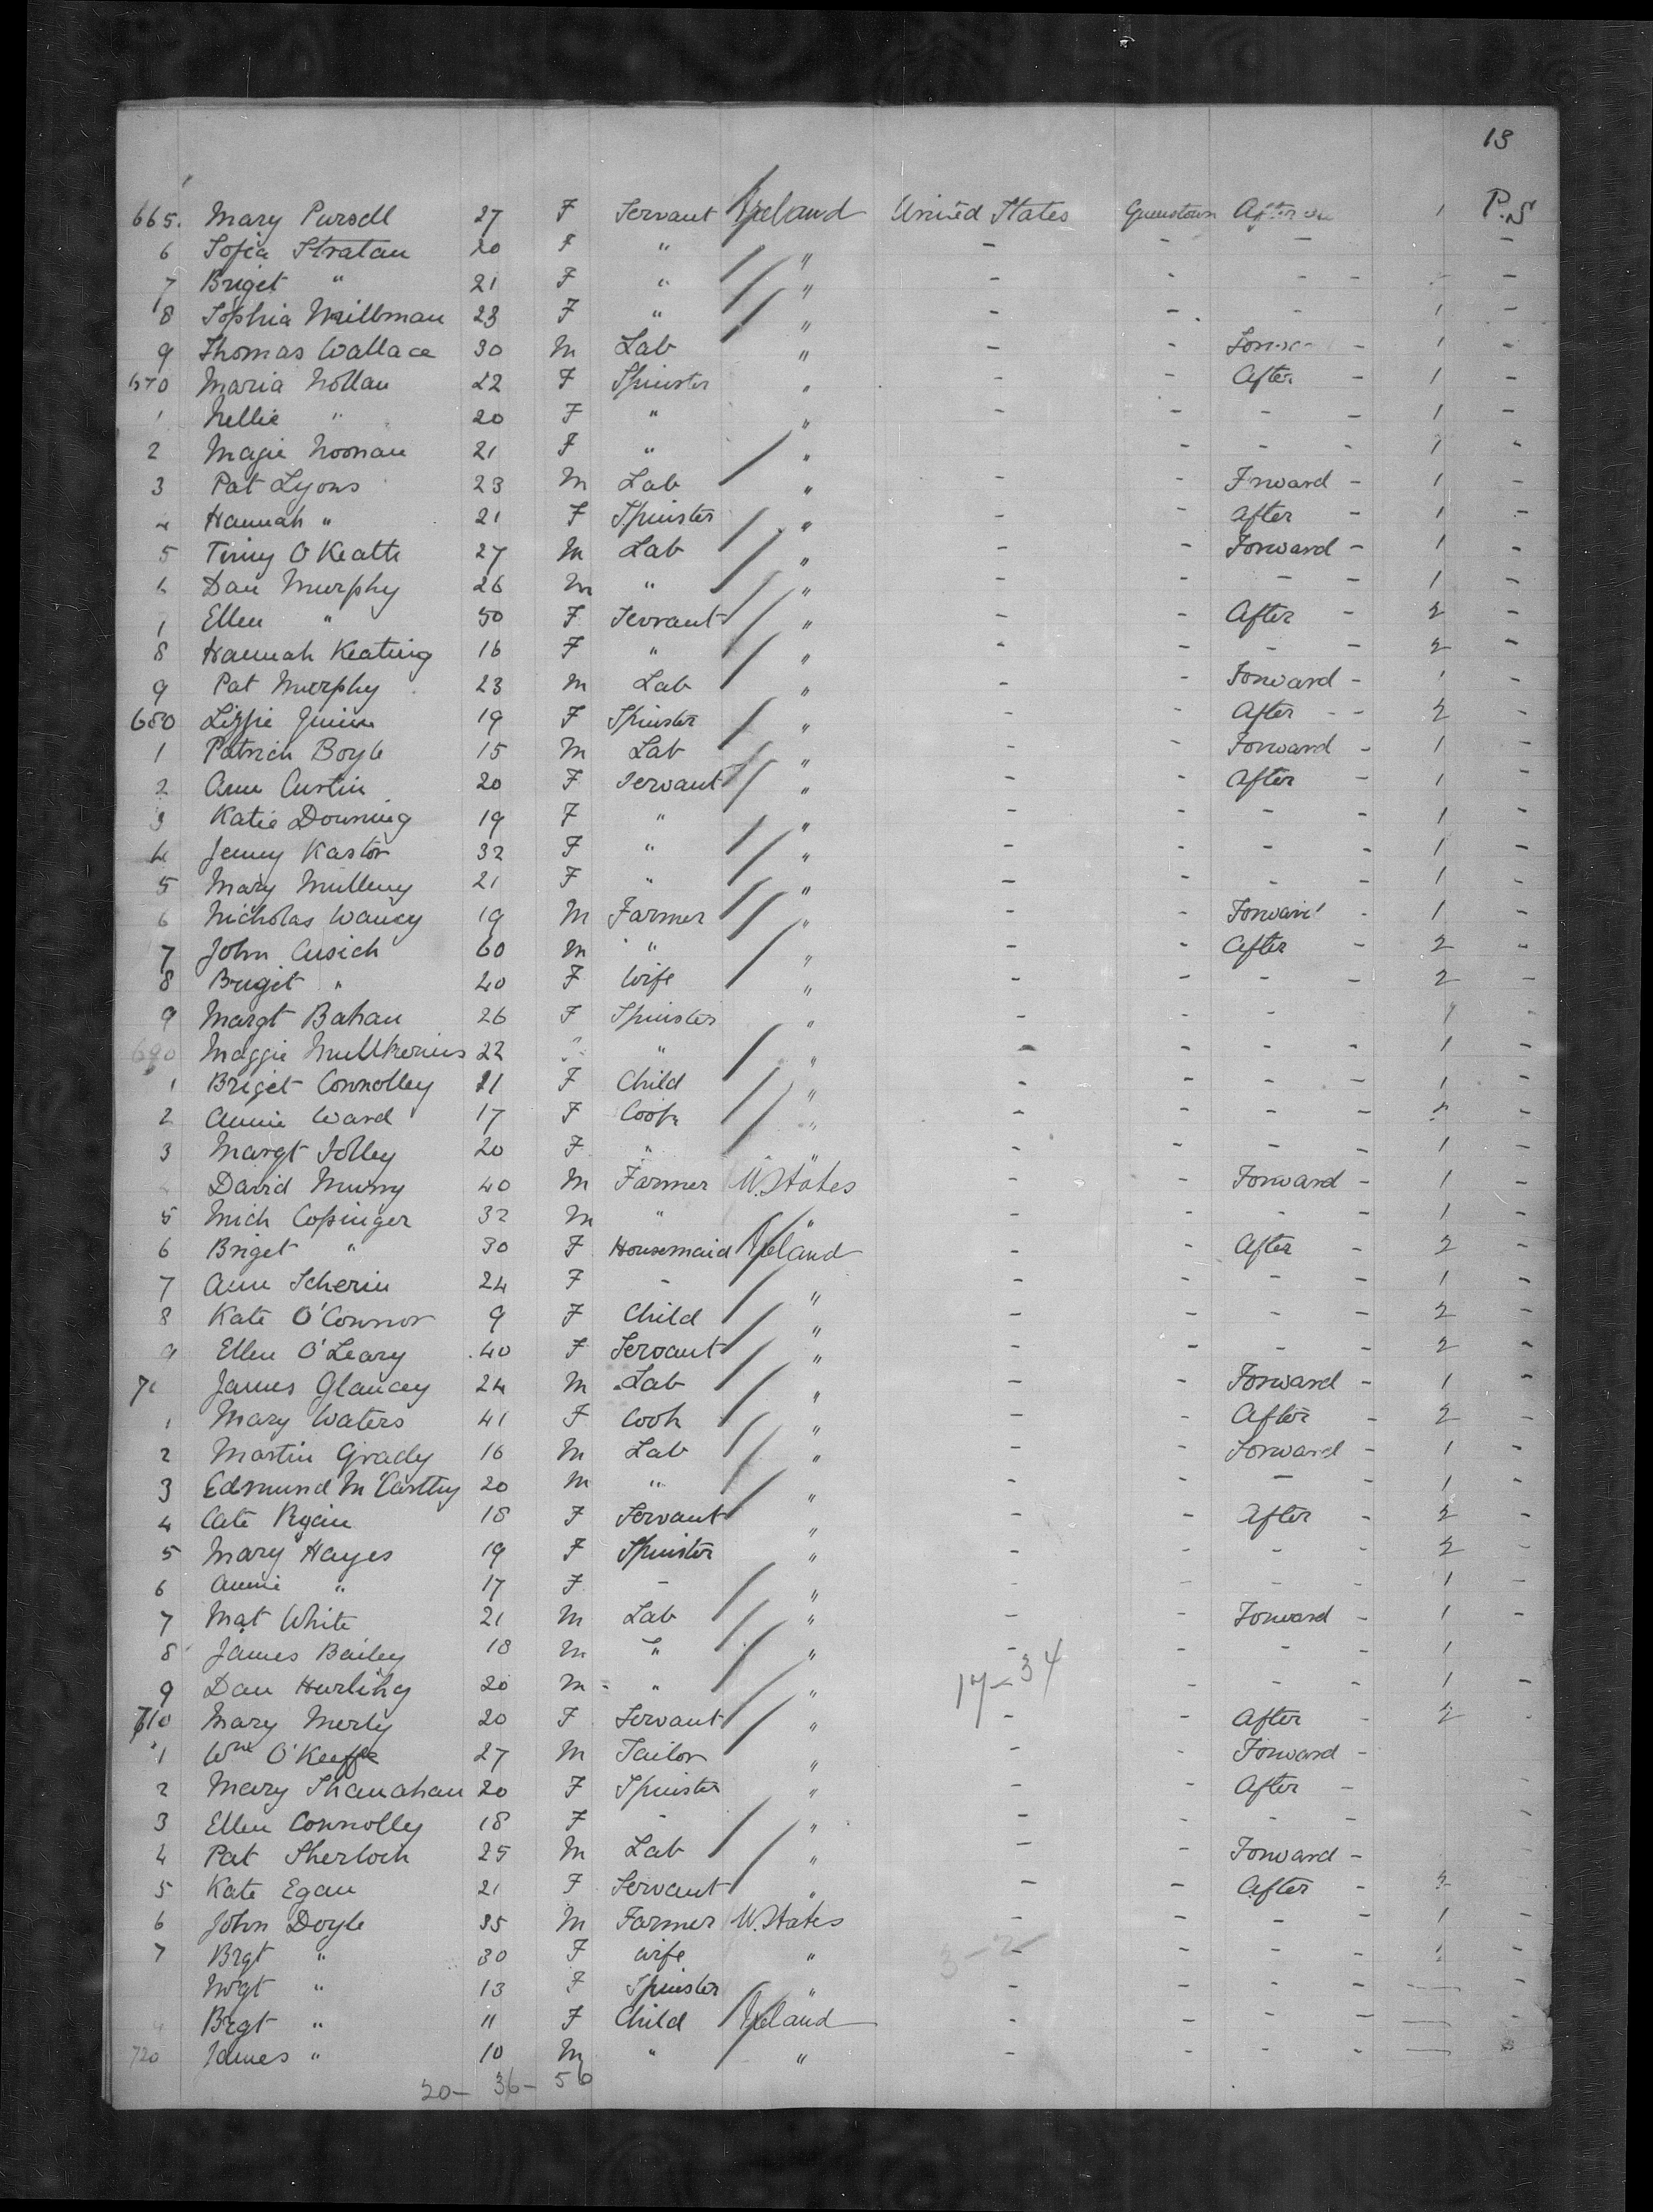 13
665. Mary Pursell 27 F Servant Ireland United States Queenstown After 1 P.S
6 Sofia Stratan 20 F " " - - - -
7 Briget " 21 F " " - - - - -
8 Sophia Millman 23 F " " - - - 1 -
9 Thomas Wallace 30 M Lab " - - Forward - 1 -
670 Maria Nollan 22 F Spinster " - - After - 1 -
1 Nellie " 20 F " " - - - - 1 -
2 Magie Noonan 21 F " " - - - 1 -
3 Pat Lyons 23 M Lab " - - Forward - 1 -
4 Hannah " 21 F Spinster " - - After - 1 -
5 Timy O Keatte 27 M Lab " - - Forward - 1 -
6 Dan Murphy 26 M " " - - - - 1 -
7 Ellen " 50 F Servant " - - After - 2 -
8 Hannah Keating 16 F " " - - - - 2 -
9 Pat Murphy 23 M Lab " - - Forward - 1 -
680 Lizzie Quinn 19 F Spinster " - - After - - 2 -
1 Patrick Boyle 15 M Lab " - - Forward - 1 -
2 Ann Austin 20 F Servant " - - After - 1 -
3 Katie Downing 19 F " " - - - - 1 -
4 Jenny Kastor 32 F " " - - - - 1 -
5 Mary Mulleny 21 F " " - - - - 1 -
6 Nicholas 19 M Farmer " - - Forward - 1 -
7 John Cusick 60 M " " - - After - 2 -
8 Briget " 40 F Wife " - - - - 2 -
9 Margt Bahan 26 F Spinster " - - - 1 -
690 Maggie Mullkerins 22 " " - - - - 1 -
1 Briget Connolley 21 F Child " - - - - 1 -
2 Annie Ward 17 F Cook " - - - - -
3 Margt Jolley 20 F " " - - - - 1 -
David Murry 40 M Farmer U. States - - Forward - 1 -
5 Mich Copinger 32 M " " - - - - 1 -
6 Briget " 30 F Housemaid Ireland - - After - 2 -
7 Ann Scherin 24 F - " - - - - 1 -
8 Kate O'Connor 9 F Child " - - - - 2 -
9 Ellen O'Leary 40 F Servant " - - - - 2 -
70 James Glancey 24 M Lab " - - Forward - 1 -
1 Mary Waters 41 F Cook " - - After - 2 -
2 Martin Grady 16 M Lab " - - Forward - 1 -
3 Edmund McCarthy 20 M " " - - - - 1 -
4 Cate Ryan 18 F Servant " - - After - 2 -
5 Mary Hayes 19 F Spinster " - - - - 2 -
6 Annie " 17 F - " - - - - 1 -
7 Mat White 21 M Lab " - - Forward - 1 -
8 James Bailey 18 M " " - - - - 1
17-34
9 Dan Hurlihy 20 M - " " - - - 1 -
710 Mary Merly 20 F Servant " - - After - 2 -
1 Wm O'Keeffe 27 M Tailor " - - Forward -
2 Mary Shanahan 20 F Spinster " - - After -
3 Ellen Connolly 18 F - " - - - - -
4 Pat Sherlock 25 M Lab " - - Forward -
5 Kate Egan 21 F Servant " - - After - 2 -
6 John Doyle 35 M Farmer U. States - - - - 1 -
7 Brgt " 30 F Wife " - - - - -
3-2
Mgt " 13 F Spinster " - - - - — -
Brgt " 11 F Child Ireland - - - - — -
720 James " 10 M " " - - - - —
20- 36- 56